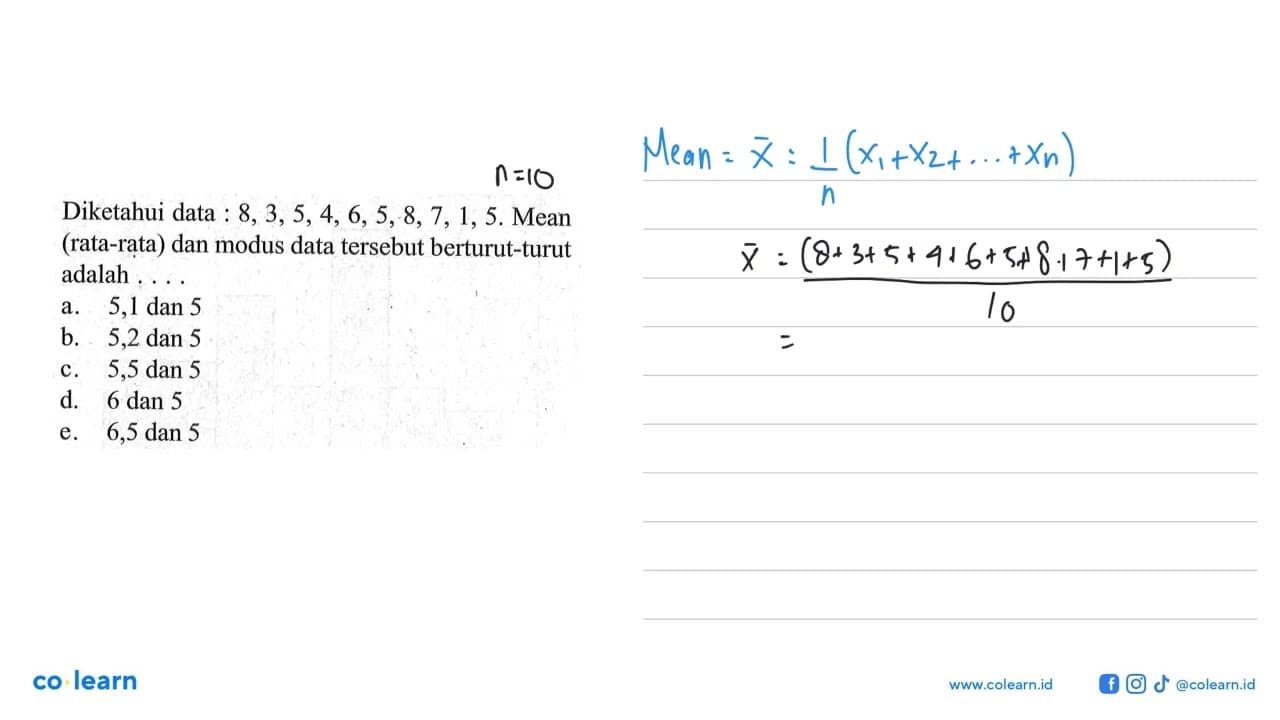 n=10
Diketahui data : 8, 3, 5, 4, 6, 5, 8, 7, 1, 5. Mean
(rata-rata) dan modus data tersebut berturut-turut
adalah . . . .
a. 5,1 dan 5
b. 5,2 dan 5
c. 5,5 dan 5
d. 6 dan 5
e. 6,5 dan 5
Mean = x̄ : 1/n (x₁+x₂+...+xn)
x̄ = (8+3+5+4+6+5+8+7+1+5)
10
=
co learn
www.colearn.id
@colearn.id